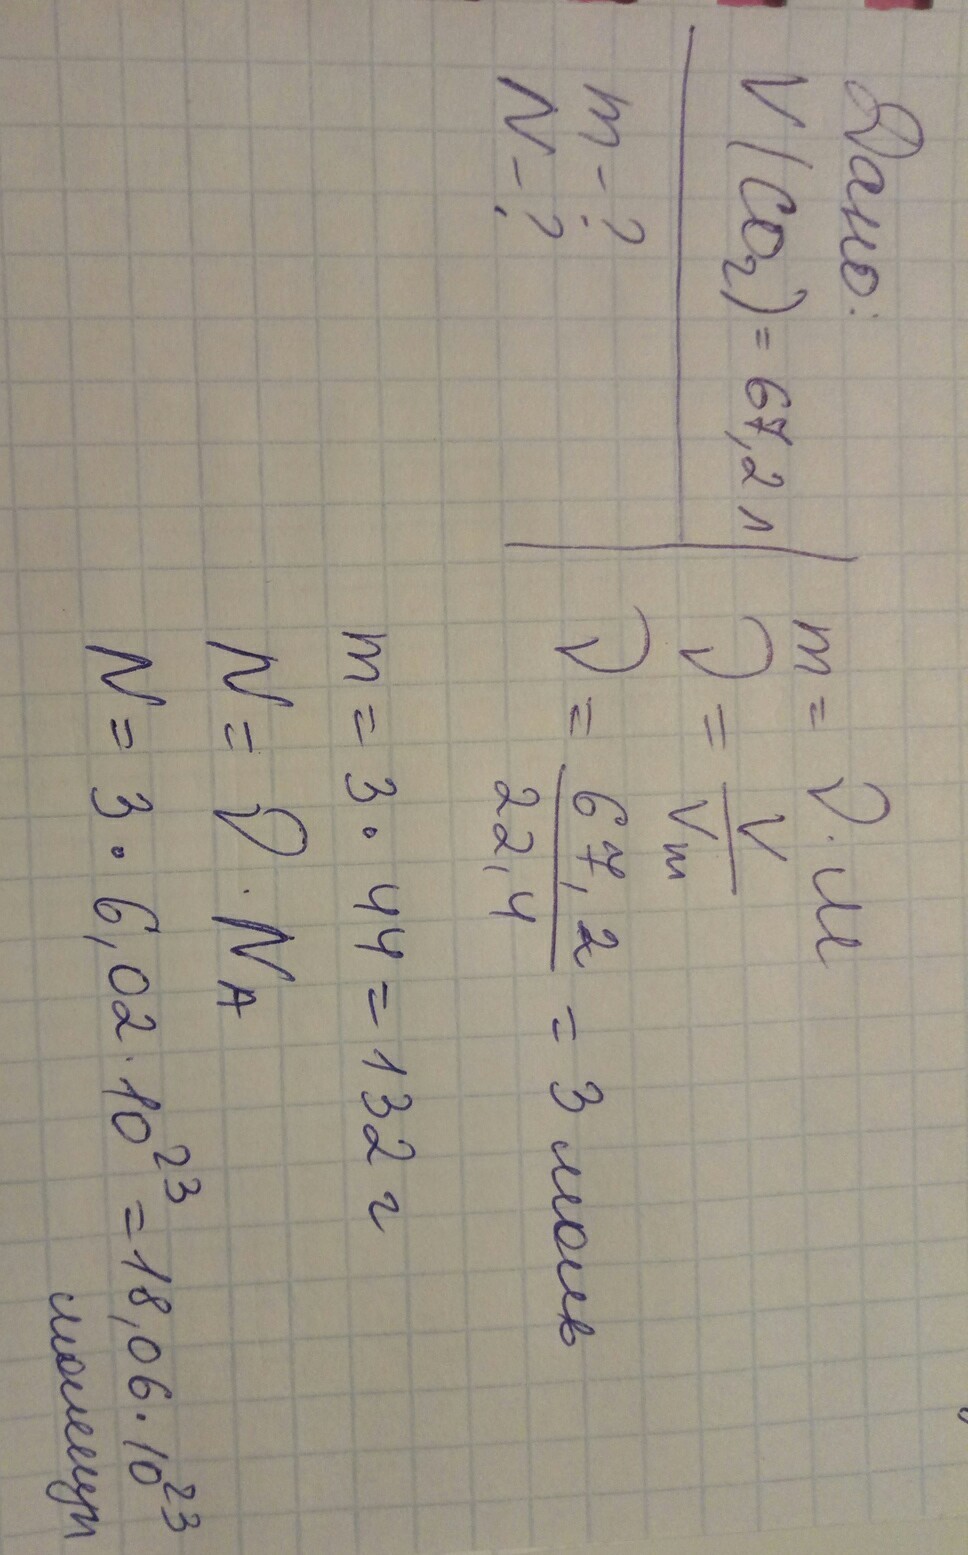 Дано:
V(CO₂) = 67,2 л
m - ?
N - ?
m = ν · M
ν = V / Vm
ν = 67,2 / 22,4 = 3 моль
m = 3 · 44 = 132 г
N = ν · NA
N = 3 · 6,02 · 10²³ = 18,06 · 10²³
молекул